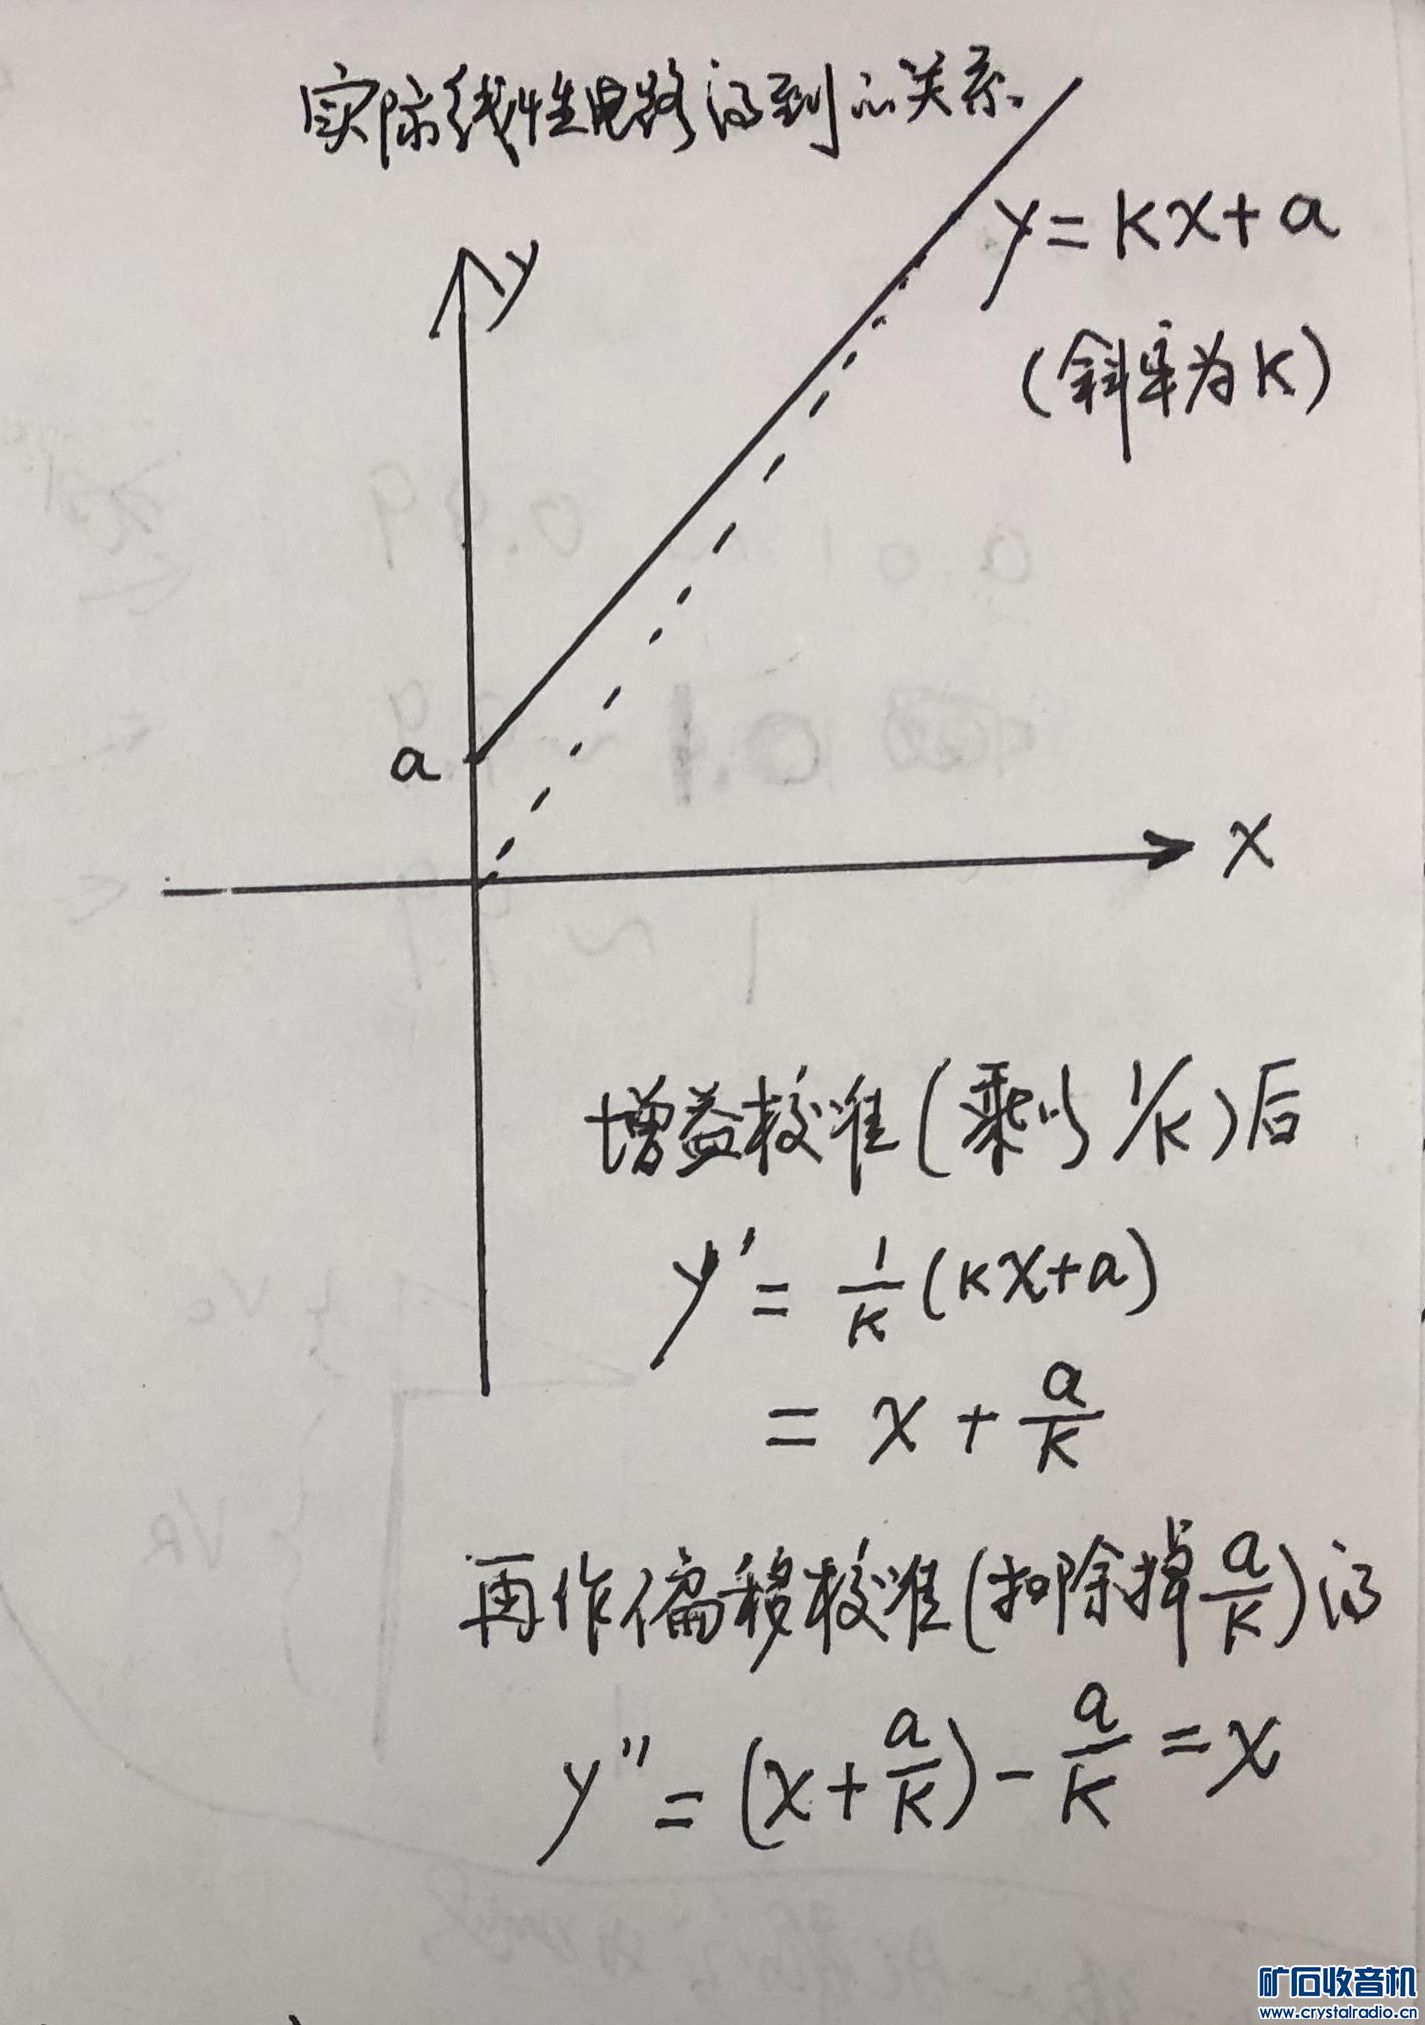 实际线性电路得到的关系
y = kx + a
(斜率为K)
y
a
x
增益校准(乘以 1/K)后
y' = 1/K (Kx+a)
= x + a/K
再作偏移校准(扣除掉 a/K)得
y'' = (x + a/K) - a/K = x
矿石收音机
www.crystalradio.cn